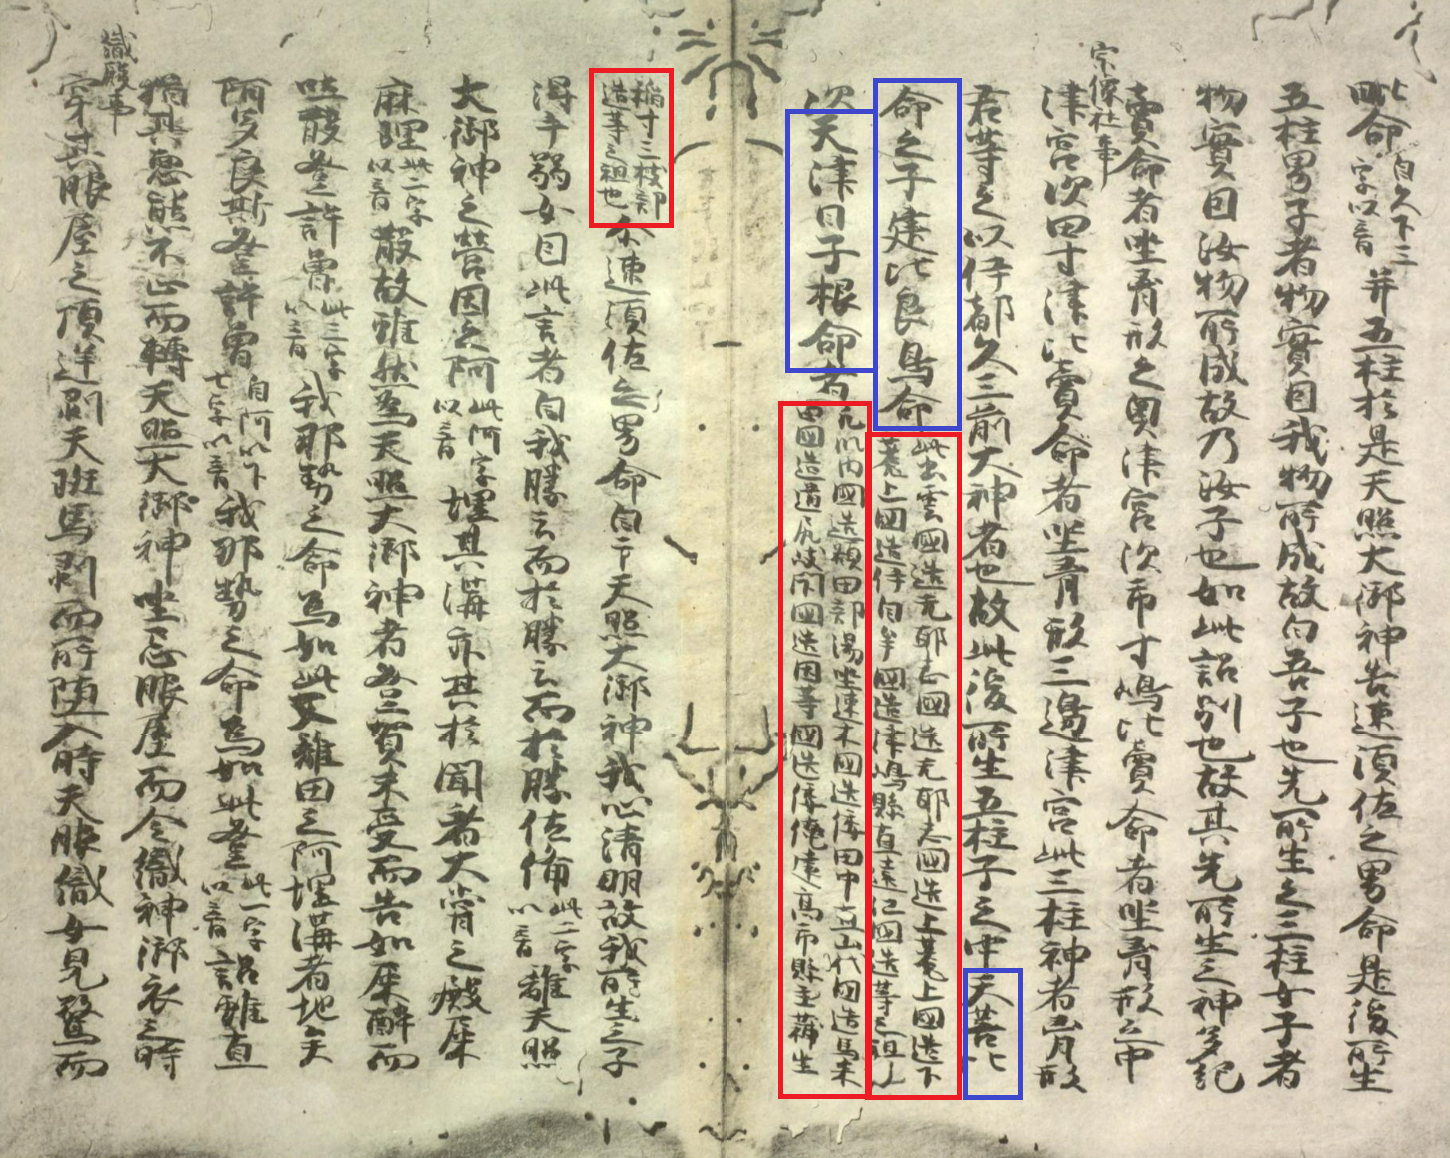 毗命自久下三字以音并五柱於是天照大御神告速須佐之男命是後所生
五柱男子者物實因我物所成故自吾子也先所生之三柱女子者
物實因汝物所成故乃汝子也如此詔別也故其先所生之神多紀
賣命者坐胷形之奥津宮次市寸嶋比賣命者坐胷形之中
宗像社事
津宮次田寸津比賣命者坐胷形三邊津宮此三柱神者胷形
君等之以伊都久三前大神者也故此後所生五柱子之中天菩比
命之子建比良鳥命此出雲國造无耶志國造无耶志國造上菟上國造下
菟上國造伊自牟國造津嶋縣直遠江國造等之祖也
次天津日子根命者凡川内國造額田部湯坐連木國造倭田中直山代國造馬来
田國造道尻岐閇國造因等國造倭俺建高市縣主蒲生
稲寸三枝部造等之祖也尒速須佐之男命白于天照大御神我心清明故我所生之子
得手弱女因此言者自我勝云而於勝云而於勝佐備此二字以音離天照
大御神之營因之阿此阿字以音埋其溝亦其於聞看大甞之殿屎
麻理此二字以音散故雖然爲天照大御神者登賀米受而告如屎醉而
吐散登許曾此三字以音我那勢之命爲如此又離田之阿埋溝者地矣
阿多良斯登許曾自阿以下七字以音我那勢之命爲如此登此一字以音詔雖直
猶其惡態不止而轉天照大御神坐忌服屋而令織神御衣之時
織殿事
穿其服屋之頂逆剥天斑馬剥而所堕入時天服織女見驚而